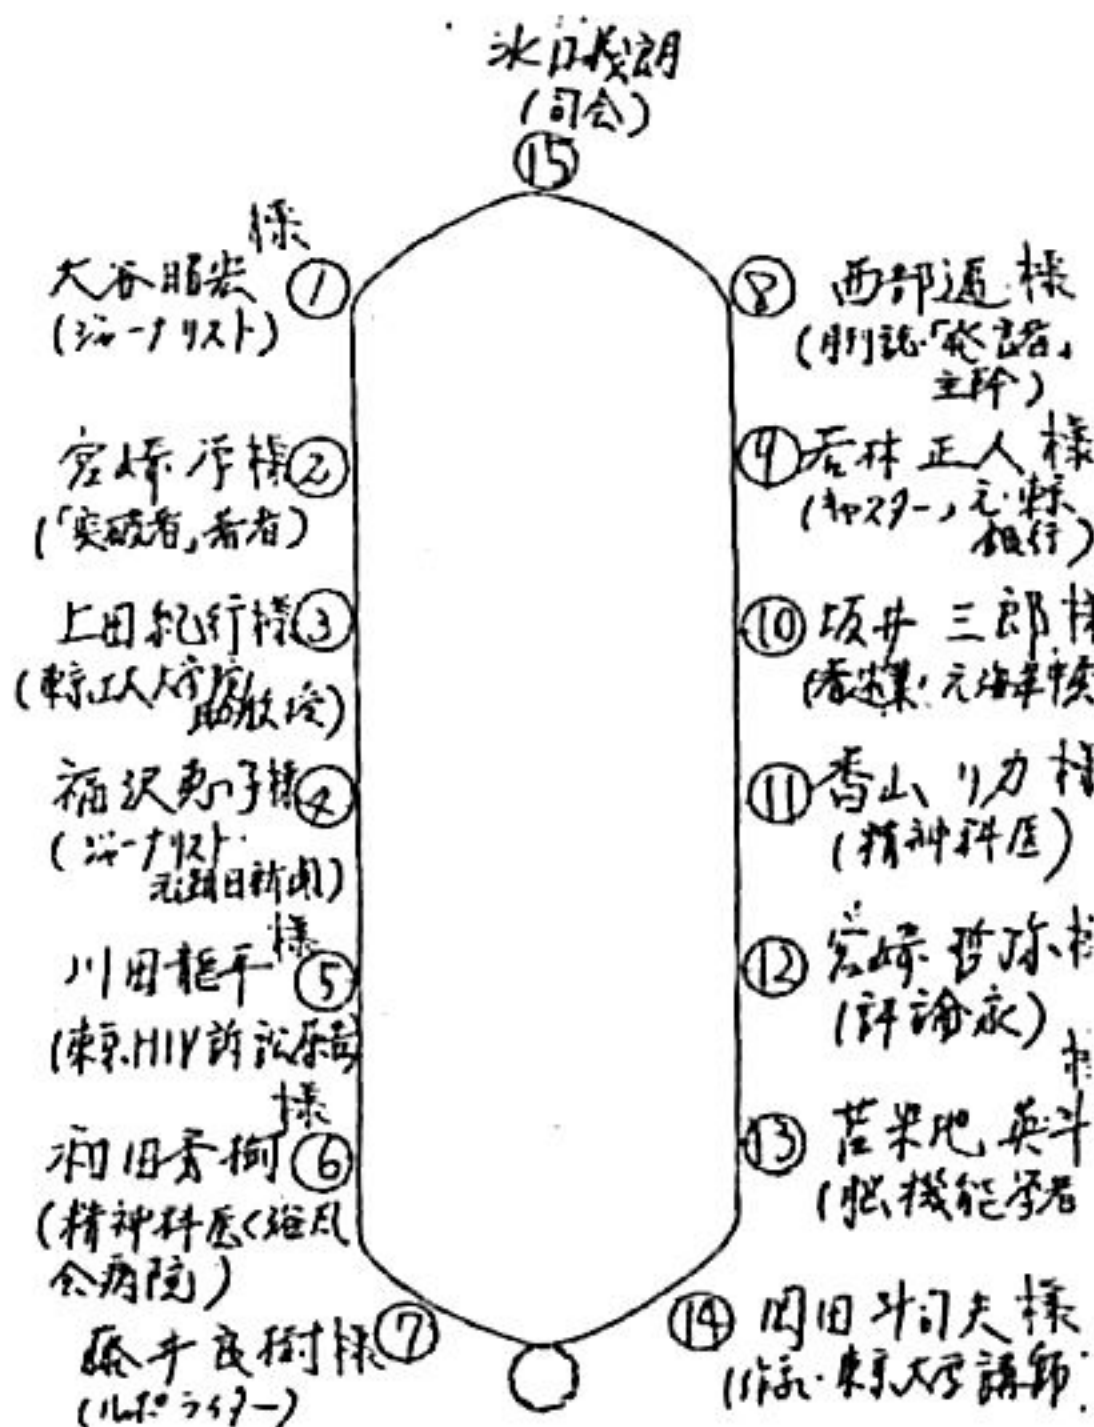 水口義朗
(司会)
⑮
様
大谷昭宏 ①
(ジャーナリスト)
宮崎学様 ②
(「突破者」著者)
上田紀行様 ③
(東京工大大学院
助教授)
福沢恵子様 ④
(ジャーナリスト・
元朝日新聞)
様
川田龍平 ⑤
(東京HIV訴訟原告)
様
和田秀樹 ⑥
(精神科医〈浴風
会病院)
藤井良樹様 ⑦
(ルポライター)
⑧ 西部邁様
(月刊誌・「発言者」
主幹)
⑨ 若林正人様
(キャスター、元・東京
銀行)
⑩ 坂井三郎様
⑪ 香山リカ様
(精神科医)
⑫ 宮崎哲弥様
(評論家)
様
⑬ 苫米地英斗
(脳機能学者
⑭ 岡田斗司夫様
(作家・東京大学講師